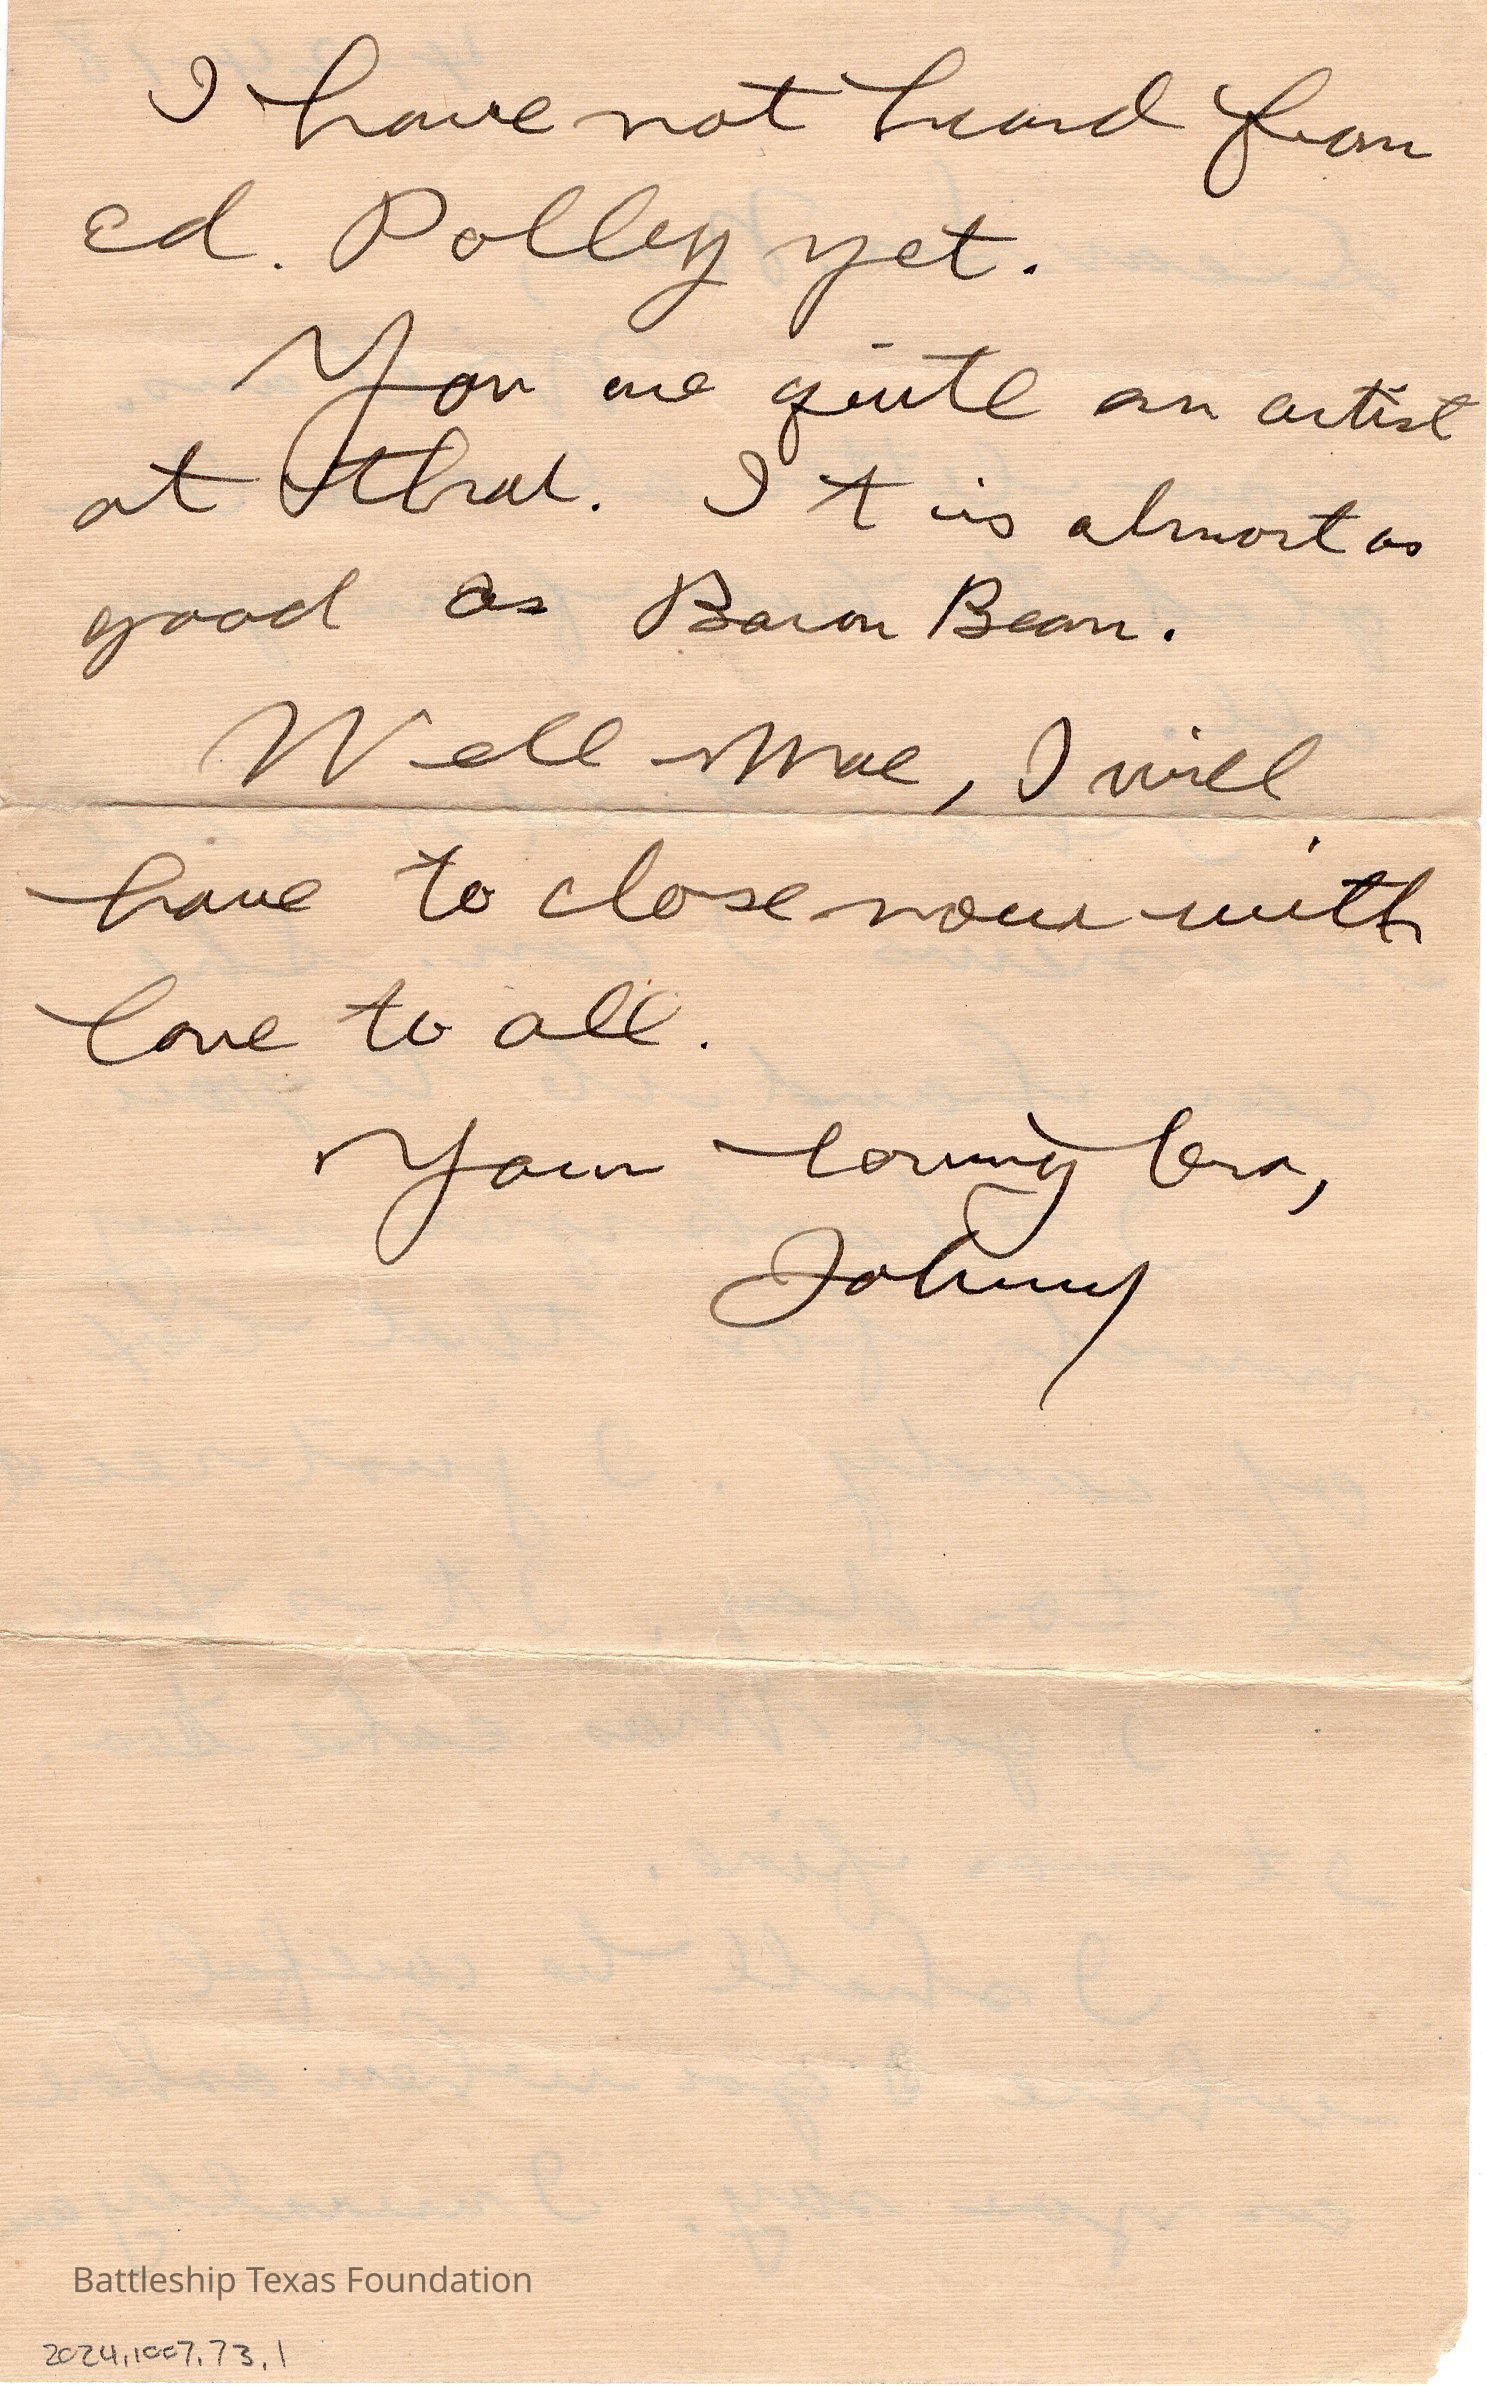 I have not heard from
Ed. Polley yet.
You are quite an artist
at that. It is almost as
good as Baron Bean.
Well Mae, I will
have to close now with
love to all.
Your loving bro,
Johnny
Battleship Texas Foundation
2024.1007.73.1